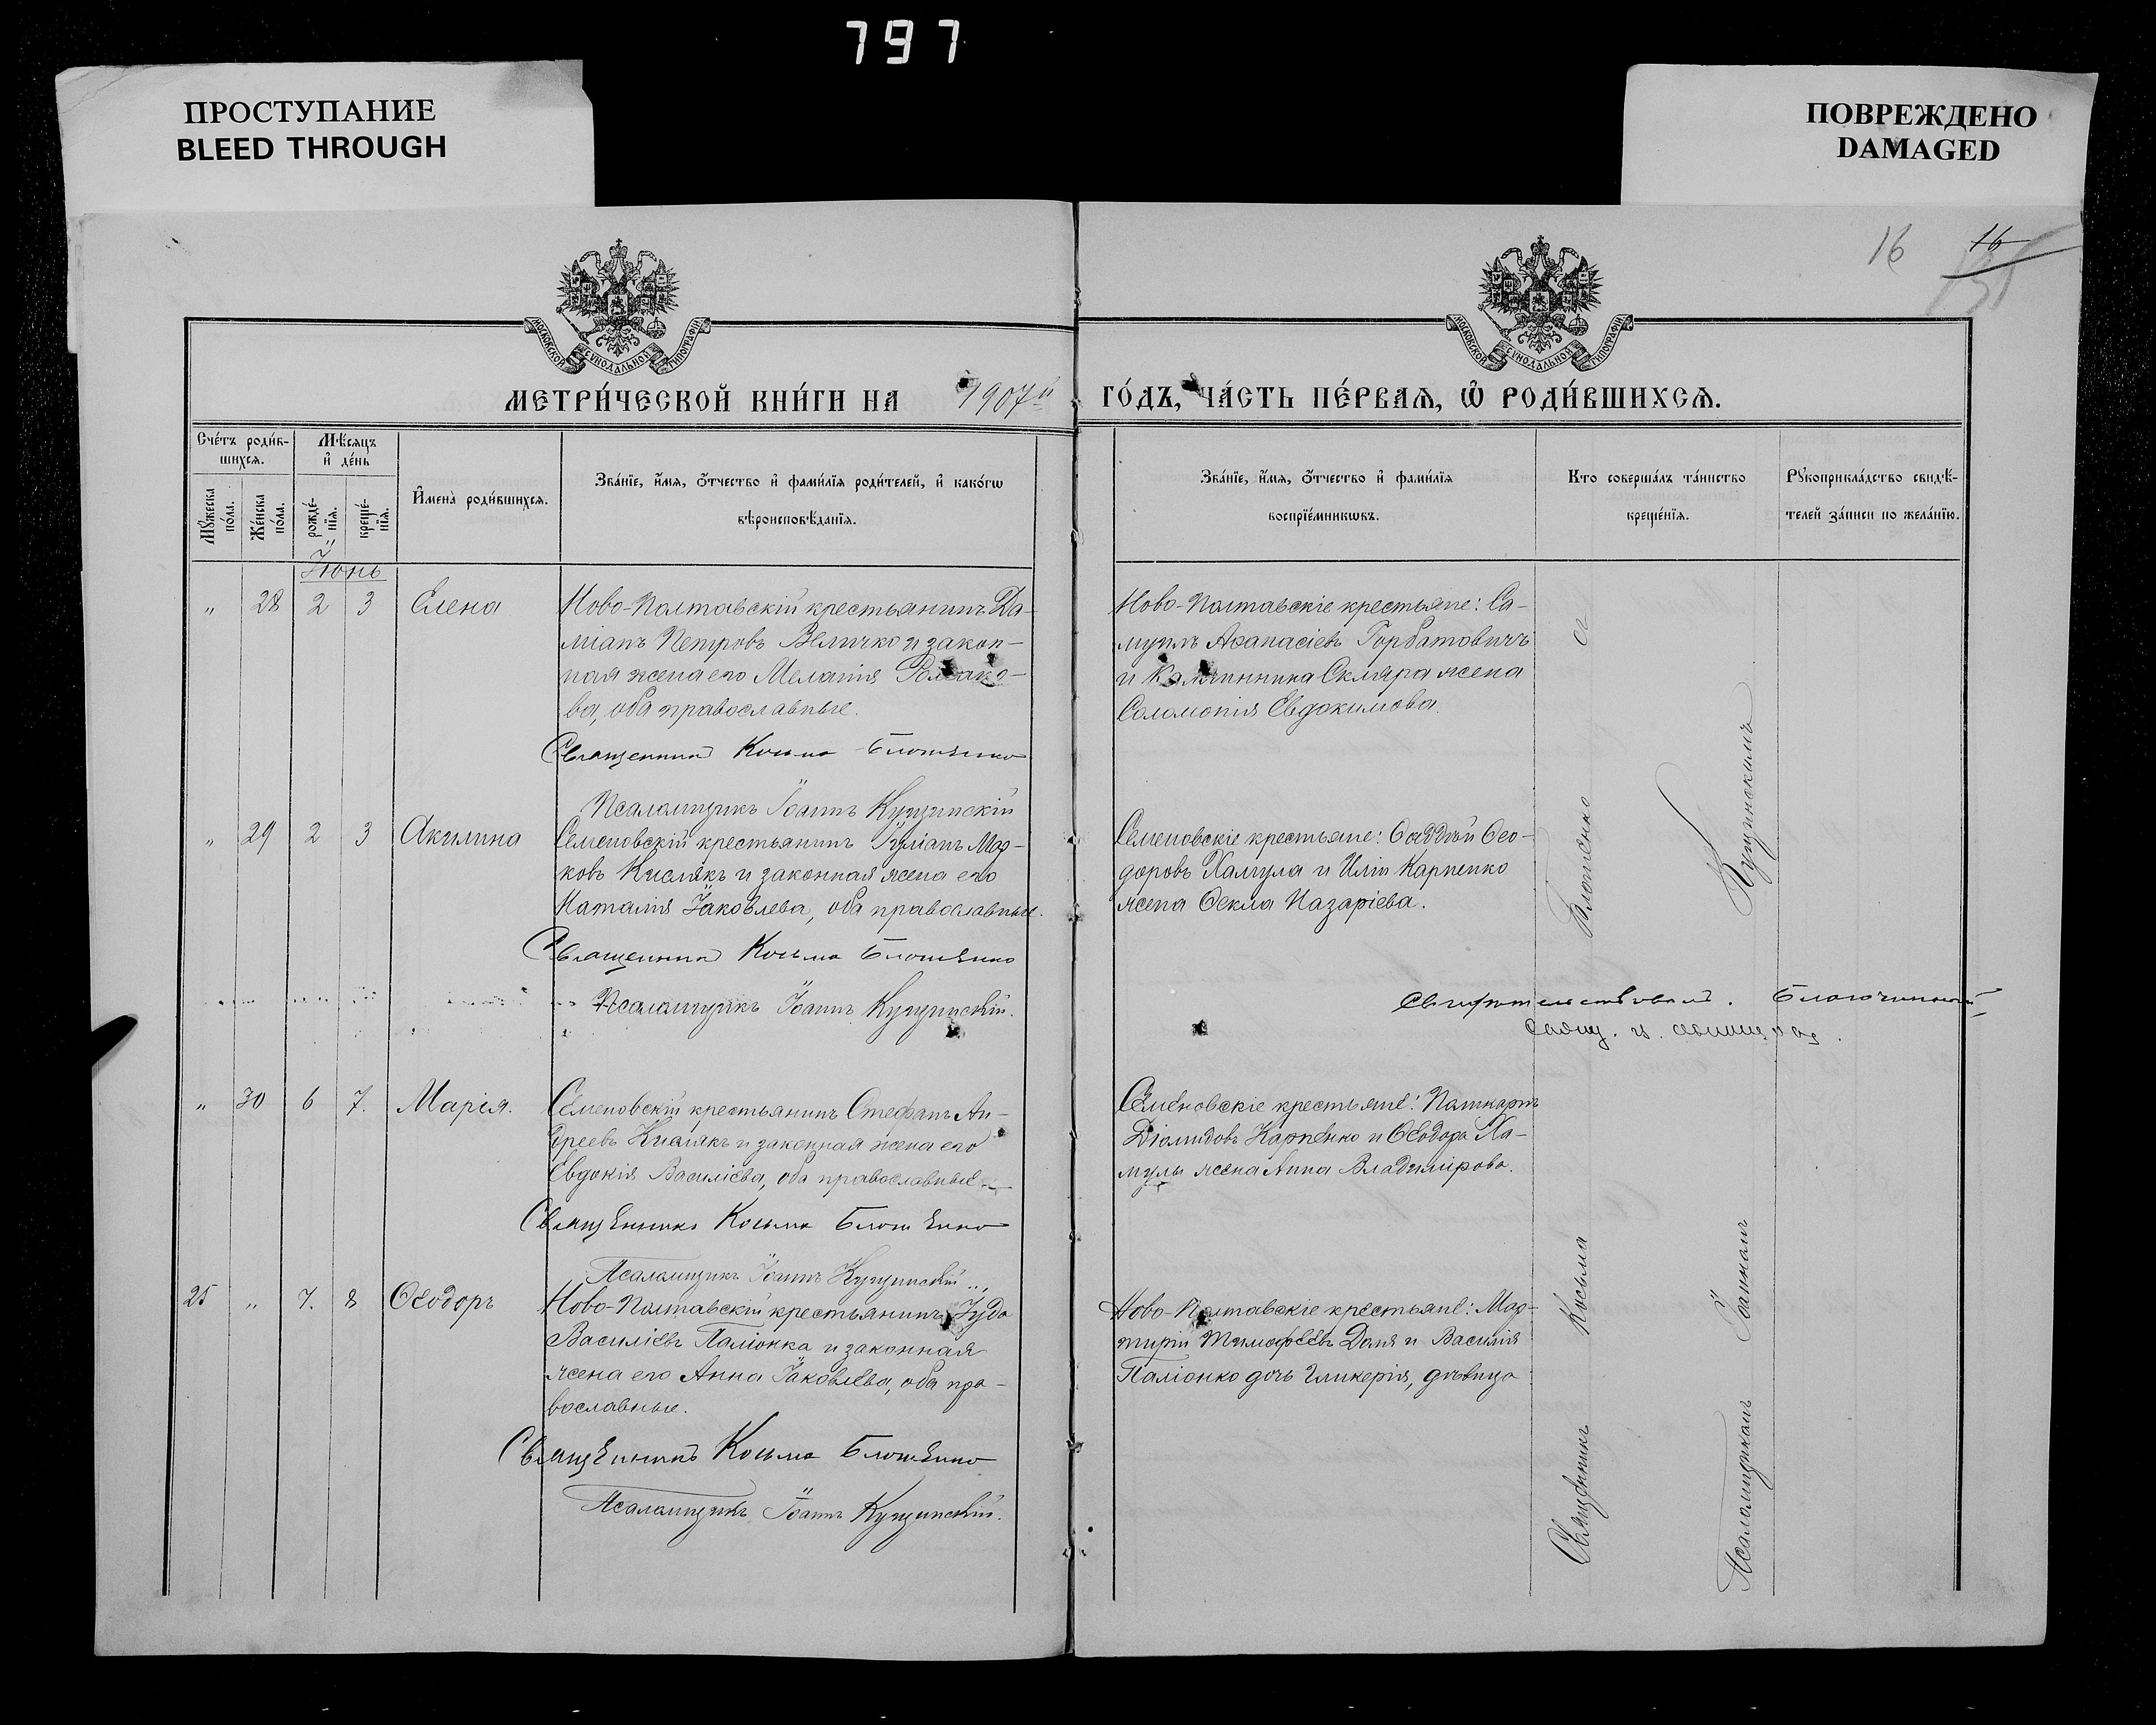 797
ПРОСТУПАНИЕ
BLEED THROUGH
ПОВРЕЖДЕНО
DAMAGED
16 16
МОСКОВСКОЙ СѴНОДАЛЬНОЙ ТИПОГРАФІИ
МОСКОВСКОЙ СѴНОДАЛЬНОЙ ТИПОГРАФІИ
МЕТРИ́ЧЕСКОЙ КНИ́ГИ НА 1907й ГО́ДЪ, ЧА́СТЬ ПЕ́РВАѦ, Ѡ҆ РОДИ́ВШИХСѦ.
Сче́тъ роди́в-
шихсѧ.
Мꙋжеска по́ла.
Же́нска по́ла.
Мѣ́сѧцъ и҆ де́нь
рожде́-нїѧ.
креще́-нїѧ.
И҆мена̀ роди́вшихсѧ.
Зва́нїе, и҆́мѧ, ѻ҆́тчество и҆ фами́лїѧ роди́телей, и҆ како́гѡ
вѣроисповѣ́данїѧ.
Зва́нїе, и҆́мѧ, ѻ҆́тчество и҆ фами́лїѧ
воспрїе́мникѡвъ.
Кто соверша́лъ та́инство
креще́нїѧ.
Рꙋкоприкла́дство свидѣ́-
телей за́писи по жела́нїю.
Іюнь
„ 28 2 3 Елена
Ново-Полтавскій крестьянинъ Да-
міанъ Петровъ Величко и закон-
ная жена его Меланія Романо-
ва, оба православные.
Священникъ Косьма Блошенко
Псаломщикъ Іоаннъ Кущинскій
Ново-Полтавскіе крестьяне: Са-
муилъ Аѳанасіевъ Горбатовичъ
и Калинника Скляра жена
Соломонія Евдокимова.
„ 29 2 3 Акилина
Семеновскій крестьянинъ Іуліанъ Мар-
ковъ Кислякъ и законная жена его
Наталія Іаковлева, оба православные.
Священникъ Косьма Блошенко
Псаломщикъ Іоаннъ Кущинскій.
Семеновскіе крестьяне: Ѳаддей Ѳео-
доровъ Хамула и Иліи Карпенко
жена Ѳекла Назаріева.
Свидѣтельствовалъ. Благочинный
Свящ.
„ 30 6 7. Марія.
Семеновскій крестьянинъ Стефанъ Ан-
дреевъ Кислякъ и законная жена его
Евдокія Василіева, оба православные.
Священникъ Косьма Блошенко
Псаломщикъ Іоаннъ Кущинскій
Семеновскіе крестьяне:
Діомидовъ Карпенко и Ѳеодора Ха-
мулы жена Анна Владимірова.
25 „ 7. 8 Ѳеодоръ
Ново-Полтавскій крестьянинъ Іуда
Василіевъ Паліонка и законная
жена его Анна Іаковлева, оба пра-
вославные.
Священникъ Косьма Блошенко
Псаломщикъ Іоаннъ Кущинскій.
Ново-Полтавскіе крестьяне: Мар-
тирій Тимофеевъ Доля и Василія
Паліонко дочь Гликерія, дѣвица
Священникъ Косьма Блошенко съ
Псаломщикомъ Іоанномъ Кущинскимъ